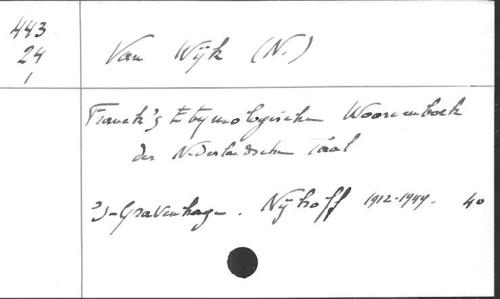 443
24
1
Van Wijk (N.)
Franck's Etymologischen Woordenboek
der Nederlandschen Taal
's-Gravenhage. Nijhoff 1912-1949. 4o